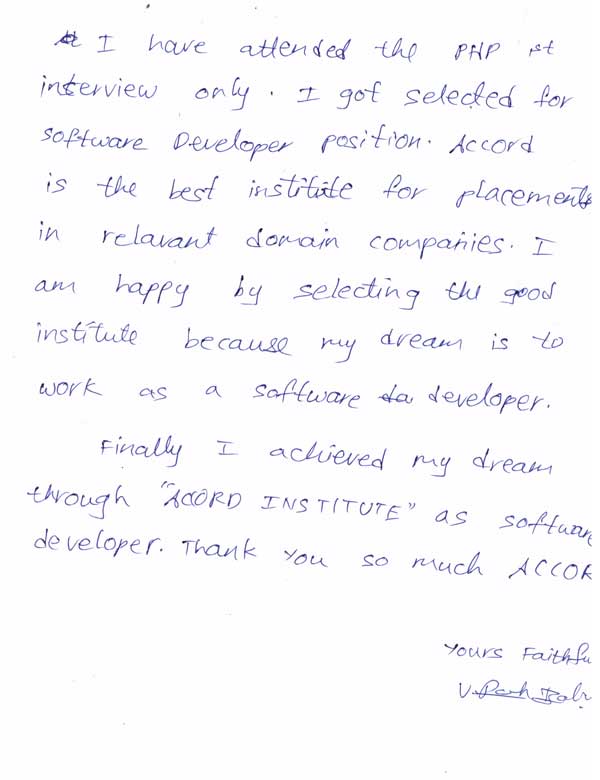 I have attended the PHP 1st
interview only. I got selected for
software Developer position. Accord
is the best institute for placements
in relavant domain companies. I
am happy by selecting the good
institute because my dream is to
work as a software developer.
Finally I achieved my dream
through "ACCORD INSTITUTE" as software
developer. Thank you so much ACCOR
Yours Faithfu
V.